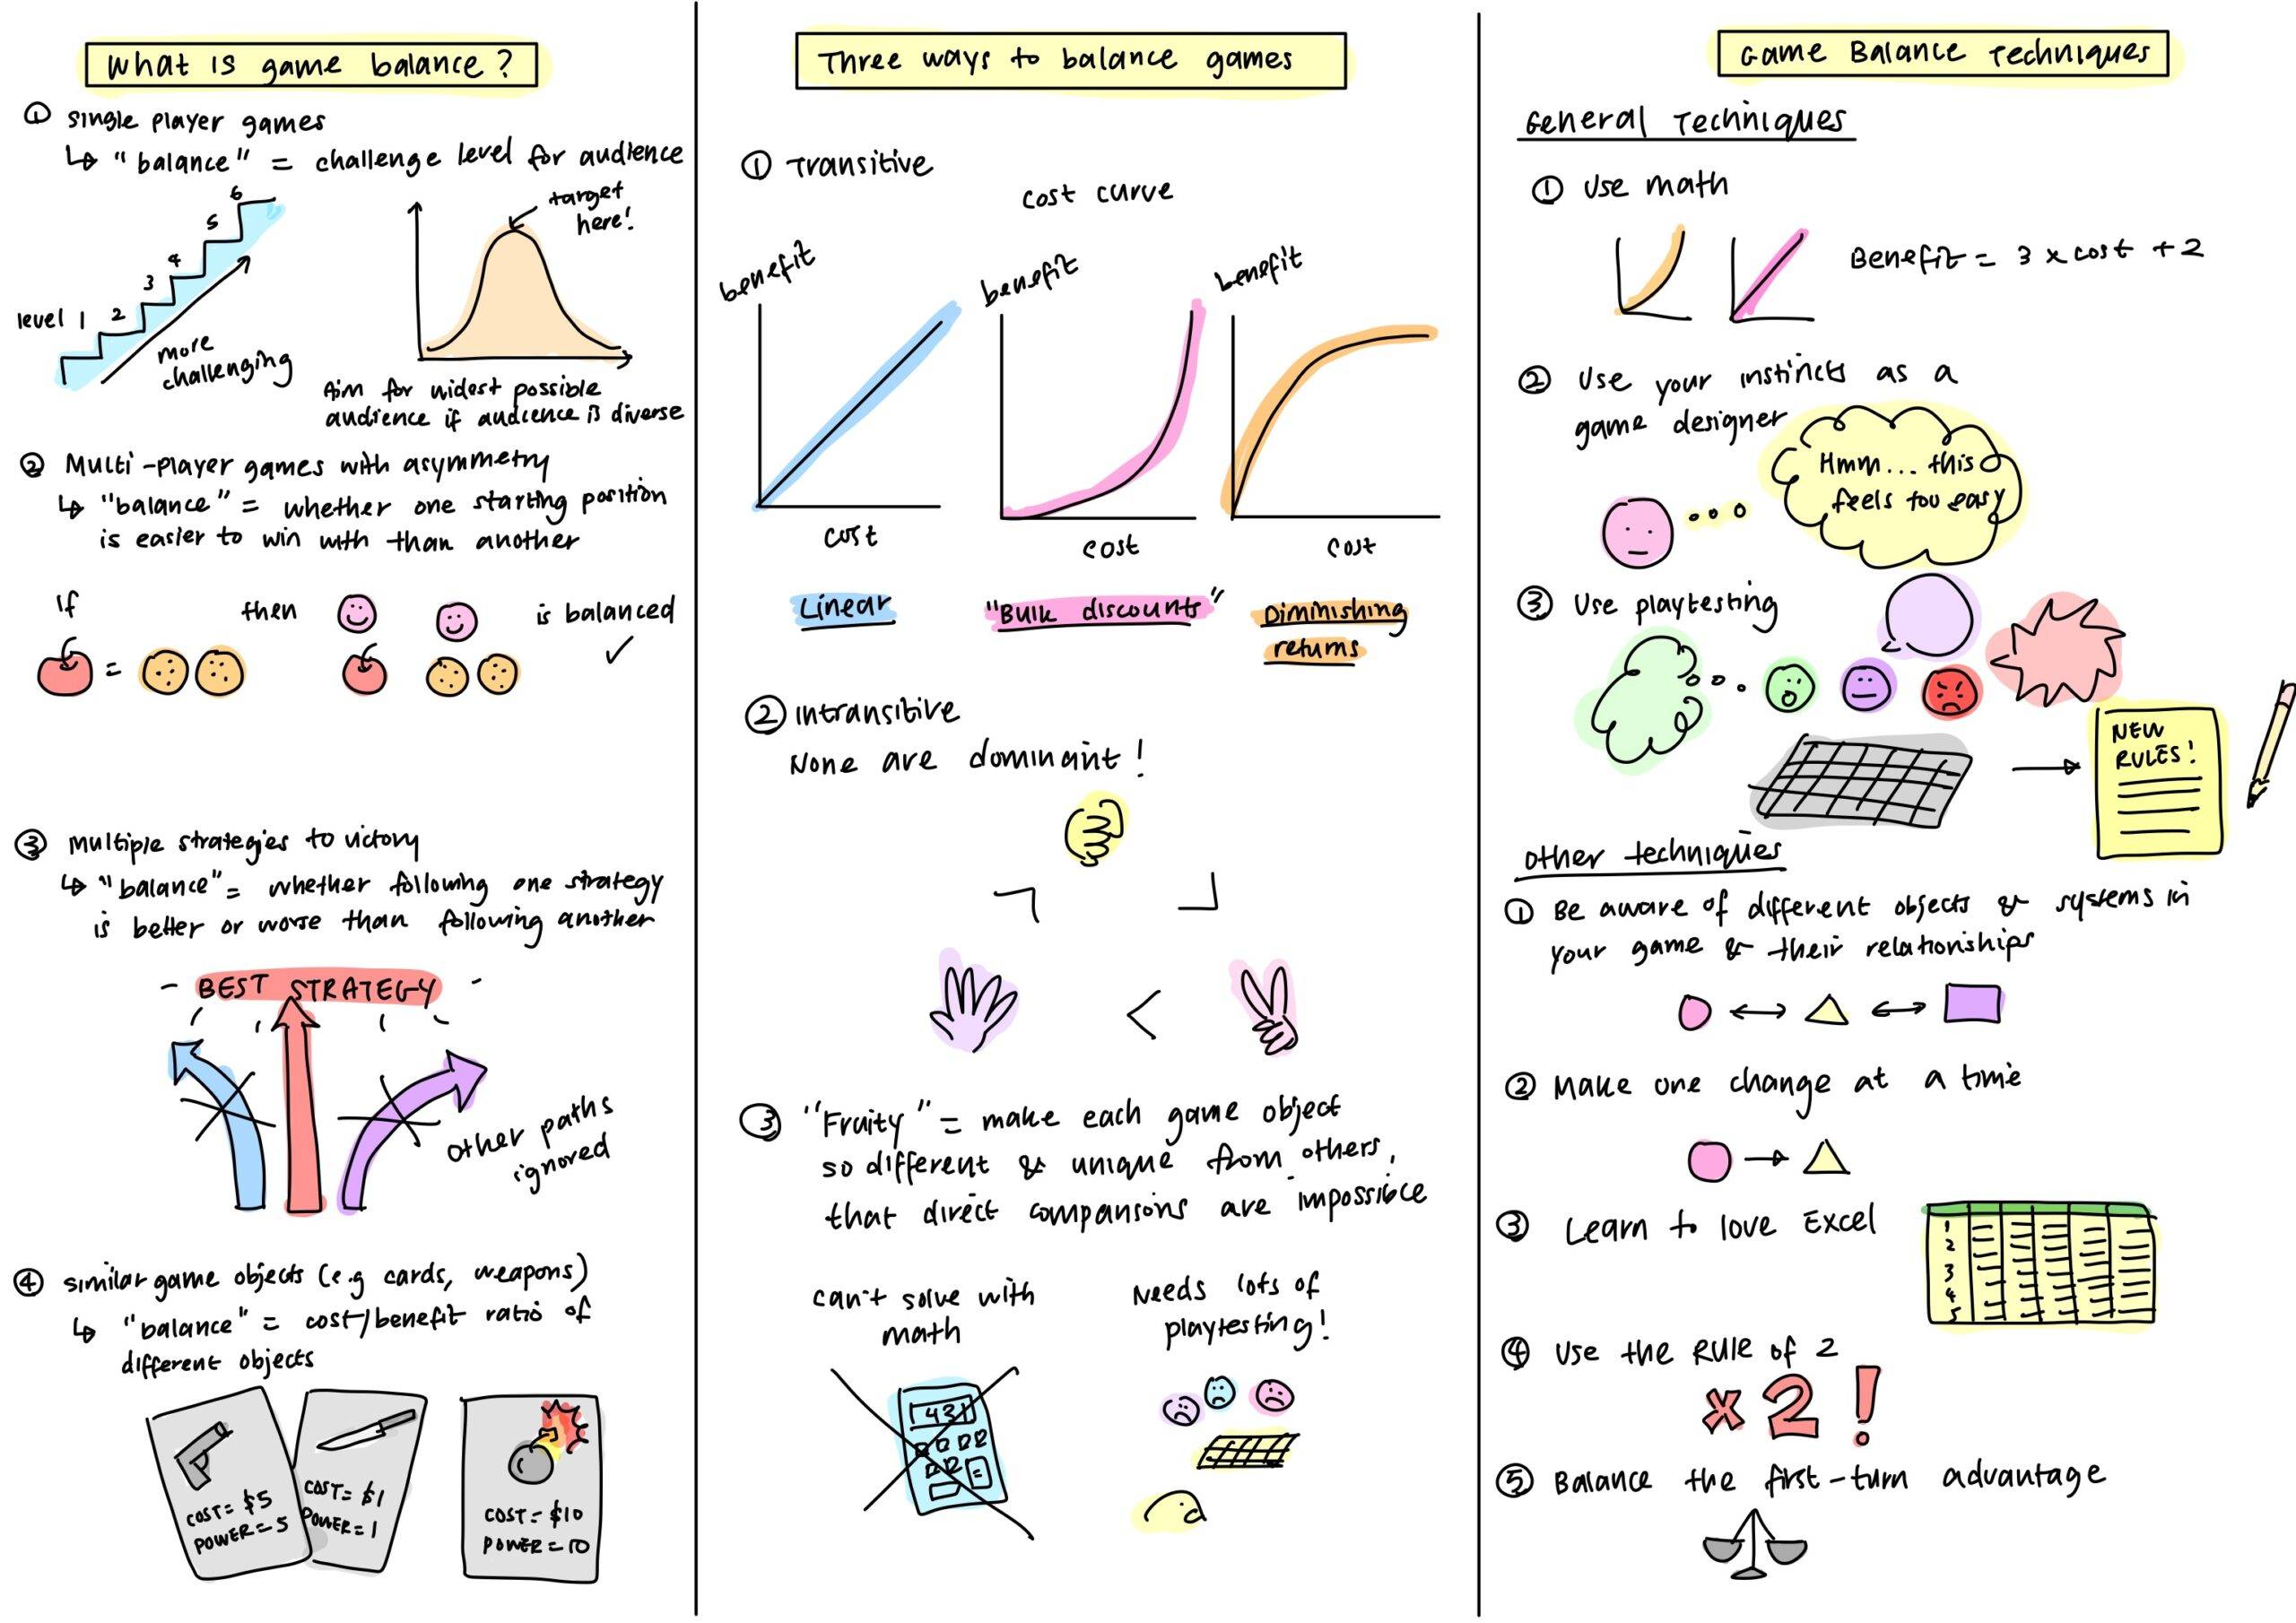 What is game balance?
① single player games
↳ "balance" = challenge level for audience
level 1
2
3
4
5
6
more
challenging
target
here!
Aim for widest possible
audience if audience is diverse
② Multi-player games with asymmetry
↳ "balance" = whether one starting position
is easier to win with than another
If
=
then
is balanced
✓
③ Multiple strategies to victory
↳ "balance" = whether following one strategy
is better or worse than following another
- BEST STRATEGY -
other paths
ignored
④ similar game objects (e.g cards, weapons)
↳ "balance" = cost/benefit ratio of
different objects
COST = $5
POWER = 5
COST = $1
POWER = 1
COST = $10
POWER = 10
Three ways to balance games
① Transitive
cost curve
benefit
cost
Linear
benefit
cost
"Bulk discounts"
benefit
cost
Diminishing
returns
② intransitive
None are dominant!
<
③ "Fruity" = make each game object
so different & unique from others,
that direct comparisons are impossible
can't solve with
math
431
=
Needs lots of
playtesting!
Game Balance Techniques
General Techniques
① Use math
Benefit = 3 x cost + 2
② Use your instincts as a
game designer
Hmm... this
feels too easy
③ Use playtesting
NEW
RULES!
other techniques
① Be aware of different objects & systems in
your game & their relationships
② Make one change at a time
③ Learn to love Excel
1
2
3
4
5
④ Use the RULE of 2
x 2 !
⑤ Balance the first-turn advantage